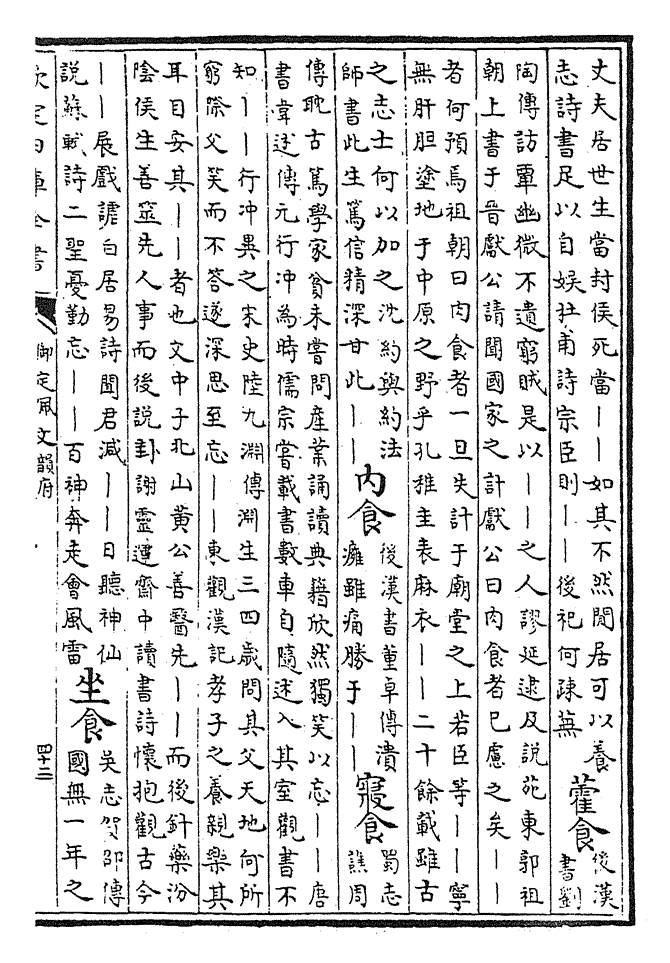 丈夫居世生當封侯死當——如其不然閒居可以養
志詩書足以自娯杜甫詩宗臣則——後祀何疎蕪
藿食
後漢
書劉
陶傳訪覃幽微不遺窮賤是以——之人謬延逮及說苑東郭祖
朝上書于晉獻公請聞國家之計獻公曰肉食者已慮之矣——
者何預焉祖朝曰肉食者一旦失計于廟堂之上若臣等——寧
無肝胆塗地于中原之野乎孔稚圭表麻衣——二十餘載雖古
之志士何以加之沈約與約法
師書此生篤信精深甘此——
内食
後漢書董卓傳潰
癰雖痛勝于——
寢食
蜀志
譙周
傳耽古篤學家貧未嘗問產業誦讀典籍欣然獨笑以忘——唐
書韋述傳元行冲為時儒宗嘗載書數車自隨述入其室觀書不
知——行冲異之宋史陸九淵傳淵生三四歲問其父天地何所
窮際父笑而不答遂深思至忘——東觀漢記孝子之養親樂其
耳目安其——者也文中子北山黄公善醫先——而後針藥汾
陰侯生善筮先人事而後說卦謝靈運齋中讀書詩懷抱觀古今
——展戲謔白居易詩聞君減——日聽神仙
說蘇軾詩二聖憂勤忘——百神奔走會風雷
坐食
吳志賀邵傳
國無一年之
欽定四庫全書
御定佩文韻府
四十三